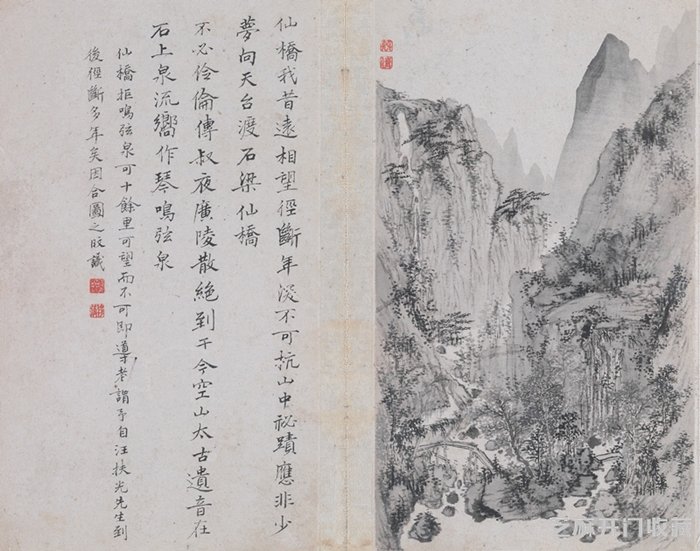 仙橋我昔遠相望徑斷年深不可杭山中祕蹟應非少
夢向天台渡石梁仙橋
不必伶倫傳叔夜廣陵散絕到于今空山太古遺音在
石上泉流嚮作琴鳴弦泉
仙橋拒鳴弦泉可十餘里可望而不可即導老謂予自汪扶光先生到
後徑斷多年矣因合圖之旼識
芝麻开门收藏